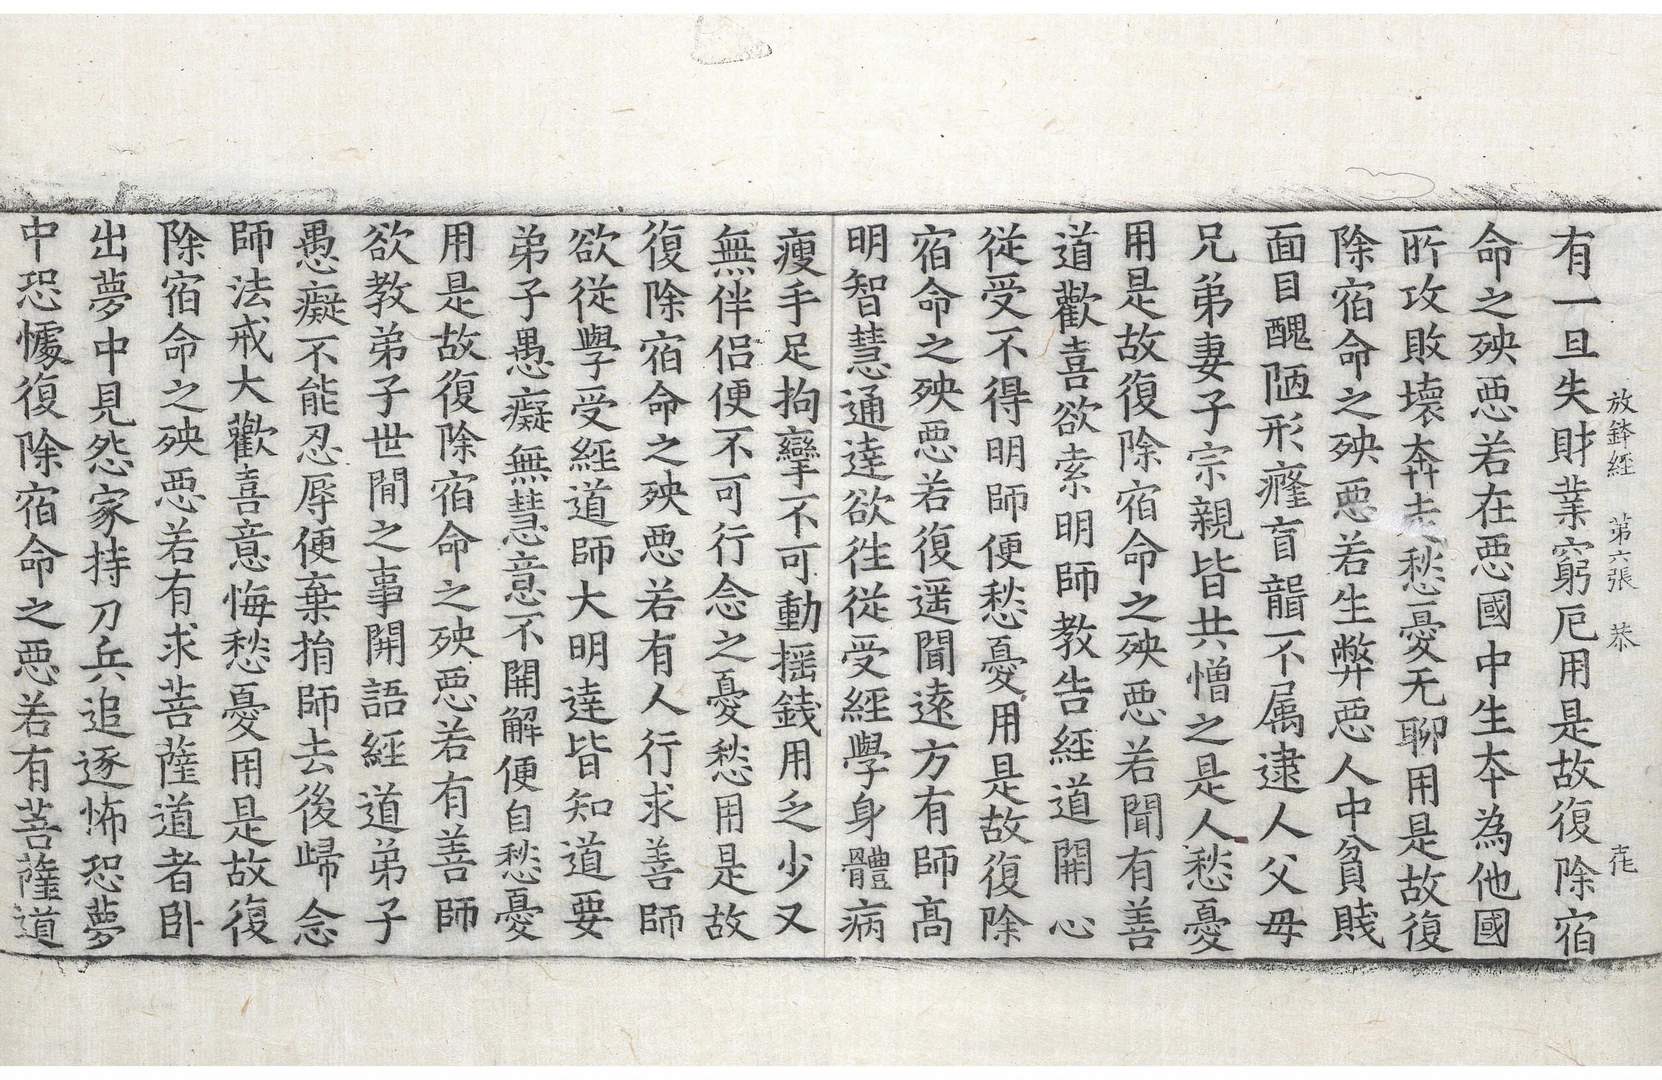 放鉢経　第六張　恭
有一旦失財業窮厄用是故復除宿
命之殃惡若在惡國中生夲為他國
所攻敗壞奔走愁憂无聊用是故復
除宿命之殃惡若生弊惡人中貧賤
面目醜陋形癃盲聾不属逮人父母
兄弟妻子宗親皆共憎之是人愁憂
用是故復除宿命之殃惡若聞有善
道歡喜欲索明師教告経道開心
従受不得明師便愁憂用是故復除
宿命之殃惡若復遥聞逺方有師髙
明智慧通達欲徃従受経學身體病
瘦手足拘攣不可動揺錢用乏少又
無伴侣便不可行念之憂愁用是故
復除宿命之殃惡若有人行求善師
欲従學受経道師大明達皆知道要
弟子愚癡無慧意不開解便自愁憂
用是故復除宿命之殃惡若有善師
欲教弟子世間之事開語経道弟子
愚癡不能忍辱便棄捐師去後歸念
師法戒大歡喜意悔愁憂用是故復
除宿命之殃惡若有求菩薩道者卧
出夢中見怨家持刀兵追逐怖恐夢
中恐懅復除宿命之惡若有菩薩道